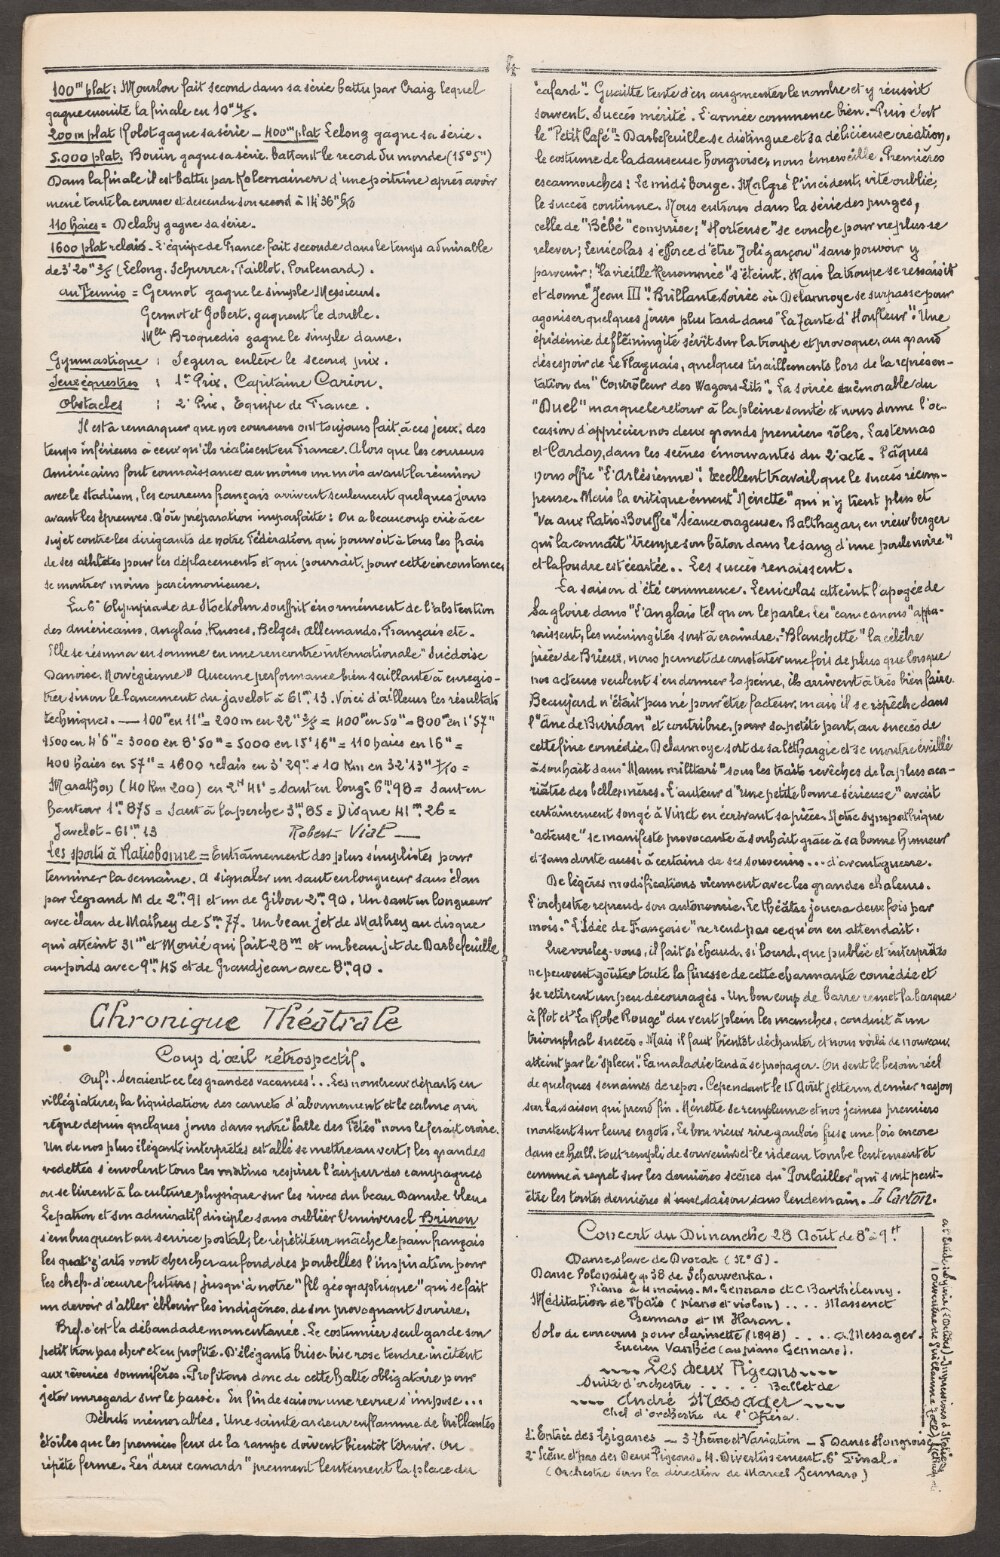 4
100m plat : Mourlon fait second dans sa série battu par Craig lequel
gagne ensuite la finale en 10" 4/5.
200m plat Rolot gagne sa série – 400m plat Lelong gagne sa série.
5.000 plat. Bouin gagne sa série. battant le record du monde (15'05")
Dans la finale il est battu par Kolemainen d'une poitrine après avoir
mené toute la course et descendu son record à 14'36"
110 haies = Delaby gagne sa série.
1600 plat relais – L'équipe de France fait seconde dans le temps admirable
de 3'20" (Lelong. Schurrer. Faillot. Poulenard).
au Tennis = Germot gagne le simple Messieurs.
Germot et Gobert. gagnent le double.
Mlle Broquedis gagne le simple dame.
Gymnastique : Segura enlève le second prix.
Jeux équestres : 1er Prix. Capitaine Cariou.
Obstacles : 2e Prix. Equipe de France.
Il est à remarquer que nos coureurs ont toujours fait, à ces jeux, des
temps inférieurs à ceux qu'ils réalisent en France. Alors que les coureurs
Américains font connaissance au moins un mois avant la réunion
avec le stadium, les coureurs français arrivent seulement quelques jours
avant les épreuves. D'où préparation imparfaite : On a beaucoup crié à ce
sujet contre les dirigeants de notre Fédération qui pourvoit à tous les frais
de ses athlètes pour les déplacements et qui pourrait, pour cette circonstance,
se montrer moins parcimonieuse.
La 6e Olympiade de Stockolm souffrit énormément de l'abstention
des américains, anglais, Russes, Belges, allemands, Français etc –
Elle se résuma en somme en une rencontre internationale "Suédoise
Danoise, Norvégienne" Aucune performance bien saillante à enregis-
trer sinon le lancement du javelot à 61m13. Voici d'ailleurs les résultats
techniques. — 100m en 11" = 200m en 22" = 400m en 50" = 800m en 1'57"
1500 en 4'6" = 3000 en 8'50" = 5000 en 15'16" = 110 haies en 16" =
400 haies en 57" = 1600 relais en 3'29" = 10 Km en 32'13"
Marathon (40 Km 200) en 2h 41' = saut en long. 6m98 = saut en
hauteur 1m875 = saut à la perche 3m85 = Disque 41m26 =
Javelot – 61m13 Robert Viat —
Les sports à Ratisbonne = Entraînement des plus simplistes pour
terminer la semaine. A signaler un saut en longueur sans élan
par Legrand M de 2m91 et un de Gibou 2m90. Un saut en longueur
avec élan de Mathey de 5m77. Un beau jet de Mathey au disque
qui atteint 31m et Monié qui fait 28m et un beau jet de Barbefeuille
au poids avec 9m45 et de Grandjean avec 8m90.
Chronique Théâtrale
Coup d'œil rétrospectif.
Ouf!. Seraient ce les grandes vacances!.. Les nombreux départs en
villégiature, la liquidation des carnets d'abonnement et le calme qui
règne depuis quelques jours dans notre "Salle des Fêtes" nous le ferait croire.
Un de nos plus élégants interprètes est allé se mettre au vert; les grandes
vedettes s'envolent tous les matins respirer l'air pur des campagnes
ou se livrent à la culture physique sur les rives du beau Danube bleu.
Le patron et son admiratif disciple sans oublier l'universel Brinon
s'embusquent au service postal; le répétiteur mâche le pain français
les quat'z'arts vont chercher au fond des poubelles l'inspiration pour
les chefs-d'œuvre futurs; jusqu'à notre "fil géographique" qui se fait
un devoir d'aller éblouir les indigènes, de son provoquant sourire.
Bref. c'est la débandade momentanée. Le costumier seul garde son
petit trou pas cher et en profite. D'élégants brise-bise rose tendre incitent
aux rêveries somnifères. Profitons donc de cette halte obligatoire pour
jeter un regard sur le passé. En fin de saison une revue s'impose...
Débuts mémorables. Une sainte ardeur enflamme de brillantes
étoiles que les premiers feux de la rampe doivent bientôt ternir. On
répète ferme. Les "deux canards" prennent lentement la place du
"cafard". Guaitte tente d'en augmenter le nombre et y réussit
souvent. Succès mérité. L'armée commence bien. Puis c'est
le "Petit Café". Barbefeuille se distingue et sa délicieuse création,
le costume de la danseuse hongroise, nous émerveille. Premières
escarmouches : Le midi bouge. Malgré l'incident, vite oublié,
le succès continue. Nous entrons dans la série des purges,
celle de "Bébé" comprise; "Hortense" se couche pour ne plus se
relever; Lenicolas s'efforce d'être "Joli garçon" sans pouvoir y
parvenir; "La vieille Renommée" s'éteint. Mais la troupe se ressaisit
et donne "Jean III". Brillante soirée où Delannoye se surpasse pour
agoniser quelques jours plus tard dans "La Tante d'Honfleur". Une
épidémie de flémingite sévit sur la troupe et provoque, au grand
désespoir de Le Flaguais, quelques tiraillements lors de la représen-
tation du "Contrôleur des Wagons-Lits". La soirée mémorable du
"Duel" marque le retour à la pleine santé et nous donne l'oc-
casion d'apprécier nos deux grands premiers rôles, Lasternas
et Cardon, dans les scènes émouvantes du 2e acte. Pâques
nous offre "l'Arlésienne". Excellent travail que le succès récom-
pense. Mais la critique émeut "Nénette" qui n'y tient plus et
"Va aux Ratis-Bouffes" Séance orageuse. Balthazar, en vieux berger
qui la connaît "trempe son bâton dans le sang d'une poule noire"
et la foudre est écartée.. Les succès renaissent.
La saison d'été commence. Lenicolas atteint l'apogée de
sa gloire dans "L'Anglais tel qu'on le parle. Les "cancanons" appa-
raissent, les méningites sont à craindre. "Blanchette" la célèbre
pièce de Brieux, nous permet de constater une fois de plus que lorsque
nos acteurs veulent s'en donner la peine, ils arrivent à très bien faire.
Beaujard n'était pas né pour être facteur, mais il se repêche dans
l'"âne de Buridan" et contribue, pour sa petite part, au succès de
cette fine comédie. Delannoye sort de sa léthargie et se montre éveillé
à souhait dans "Manu militari" sous les traits revêches de la plus aca-
riâtre des belles-mères. L'auteur d'"une petite bonne sérieuse" avait
certainement songé à Vinet en écrivant sa pièce. Notre sympathique
"acteuse" se manifeste provocante à souhait grâce à sa bonne humeur
et sans doute aussi à certains de ses souvenirs... d'avant guerre.
De légères modifications viennent avec les grandes chaleurs.
L'orchestre reprend son autonomie. Le théâtre jouera deux fois par
mois. "L'Idée de Françoise" ne rend pas ce qu'on en attendait.
Que voulez-vous, il fait si chaud, si lourd, que public et interprètes
ne peuvent goûter toute la finesse de cette charmante comédie et
se retirent un peu découragés. Un bon coup de barre remet la barque
à flot et "La Robe Rouge" du vent plein les manches, conduit à un
triomphal succès. Mais il faut bientôt déchanter et nous voilà de nouveau
atteint par le "spleen". La maladie tend à se propager. On sent le besoin réel
de quelques semaines de repos. Cependant le 15 Août jette un dernier rayon
sur la saison qui prend fin. Nénette se remplume et nos jeunes premiers
montent sur leurs ergots. Le bon vieux rire gaulois fuse une fois encore
dans ce hall. tout rempli de souvenirs et le rideau tombe lentement et
comme à regret sur les dernières scènes du "Poulailler" qui sont peut-
être les toutes dernières d'une saison sans lendemain. Le Carton.
Concert du Dimanche 28 Août de 8h à 9h
Danse slave de Dvorak (N°6).
Danse Polonaise q 38 de Scharwenka.
Piano à 4 mains. M. Gennaro et C. Barthélemy.
Méditation de Thaïs (piano et violon) .... Massenet
Gennaro et M Haran.
Solo de concours pour clarinette (1898) .... A. Messager.
Lucien VanBée (au piano Gennaro).
Les deux Pigeons
Suite d'orchestre .... Ballet de
André Messager
chef d'orchestre de l'Opéra.
1. Entrée des Tziganes – 3 Thème et Variation – 5 Danse Hongroise
2e Scène et pas des Deux Pigeons. 4. Divertissement. 6e Final.
(Orchestre sous la direction de Marcel Gennaro)